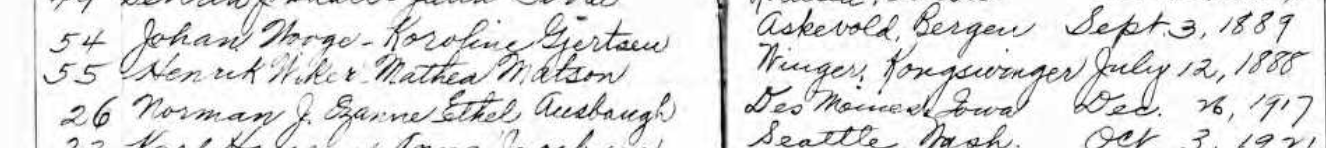 54 Johan Wooge - Karoline Gjertsen Askevold, Bergen Sept. 3, 1889
55 Henrik Wiker Mathea Matson Winger, Kongswinger July 12, 1888
26 Norman J. Ethel Ausbaugh Des Moines, Iowa Dec. 26, 1917
Seattle, Wash. Oct 3, 1921